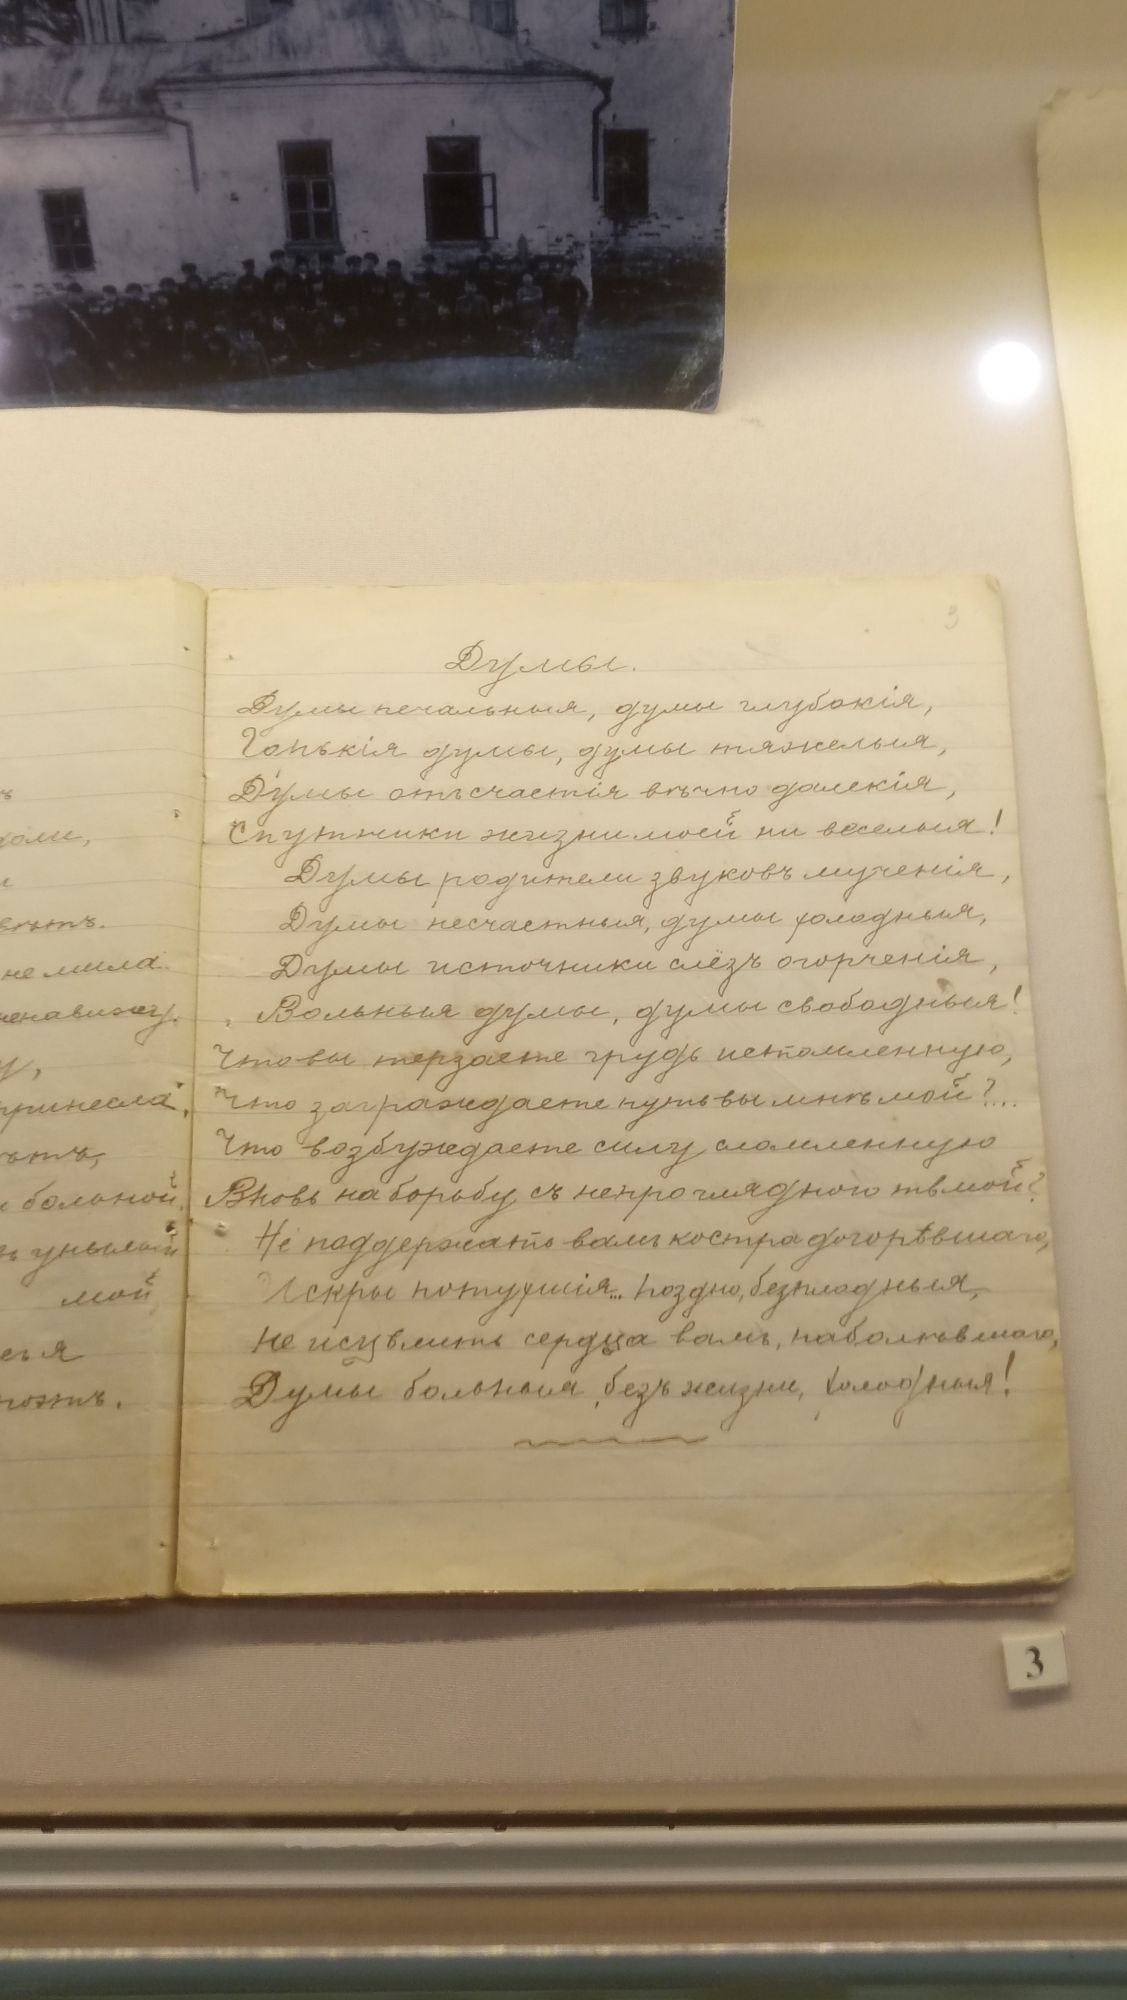 3
Думы.
Думы печальныя, думы глубокія,
Горькія думы, думы тяжелыя,
Думы отъ счастія вѣчно далекія,
Спутники жизни моей не веселыя!
Думы родители звуковъ мученія,
Думы несчастныя, думы холодныя,
Думы источники слёзъ огорченія,
Вольныя думы, думы свободныя!
Что вы терзаете грудь истомленную,
Что заграждаете путь вы мнѣ мой?...
Что возбуждаете силу сломленную
Вновь на борьбу съ непроглядною тьмой?
Не поддержать вамъ костра догорѣвшаго,
Искры потухшія... поздно, безплодныя,
Не исцѣлить сердца вамъ, наболѣвшаго,
Думы больныя, безъ жизни, холодныя!
ъ
и
не мила
ненавижу.
у,
принесла,
больной,
унылый
мой
3